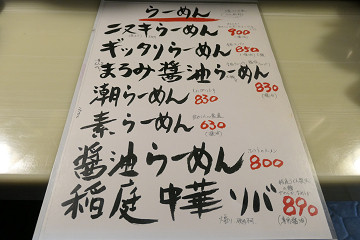 らーめん
ニヌキらーめん 900
ギッタリらーめん 850
まろみ醤油らーめん 830
潮らーめん 830
素らーめん 630
醤油らーめん 800
稲庭中華ソバ 890